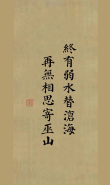 終有弱水替滄海
再無相思寄巫山